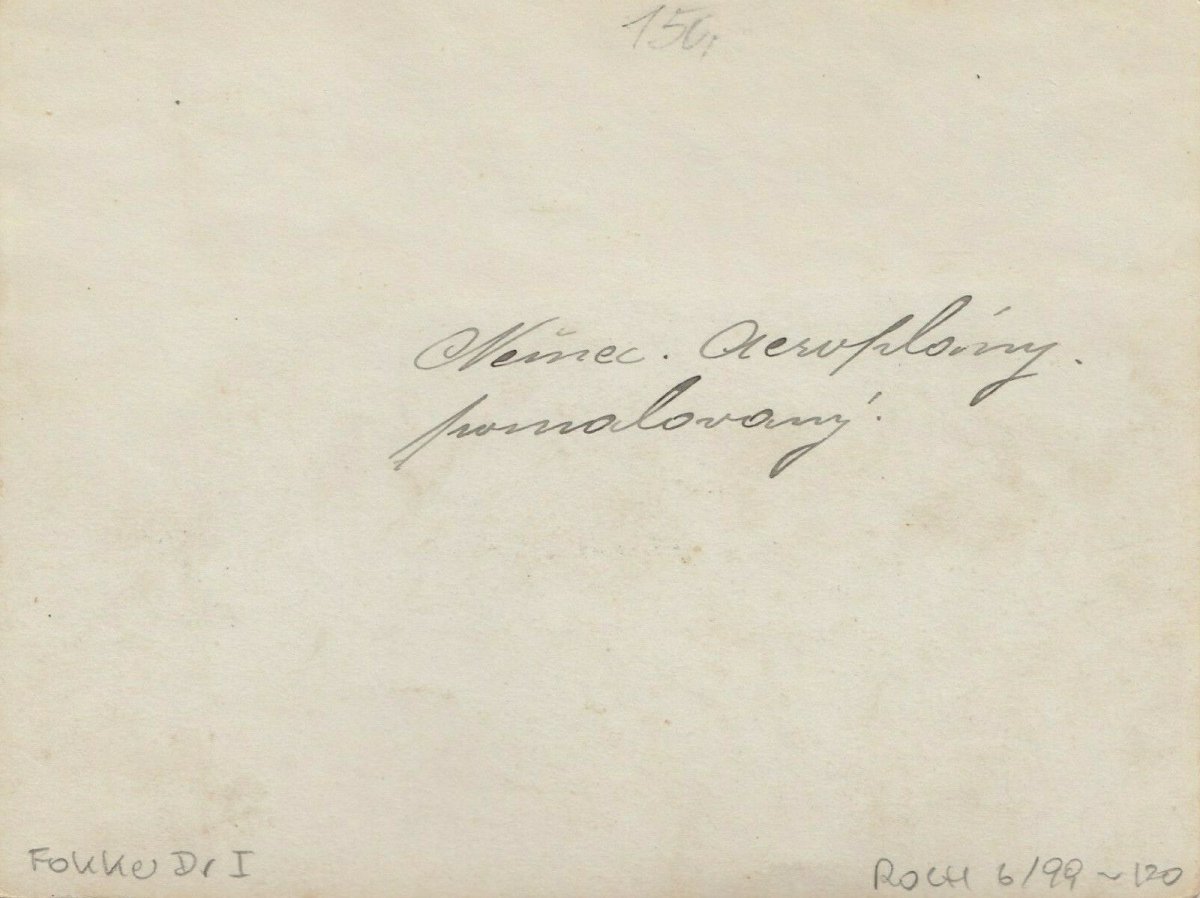 150,
Němec. Aeroplány.
pomalovaný.
Fokker Dr I
ROCH 6/99 ~ 120